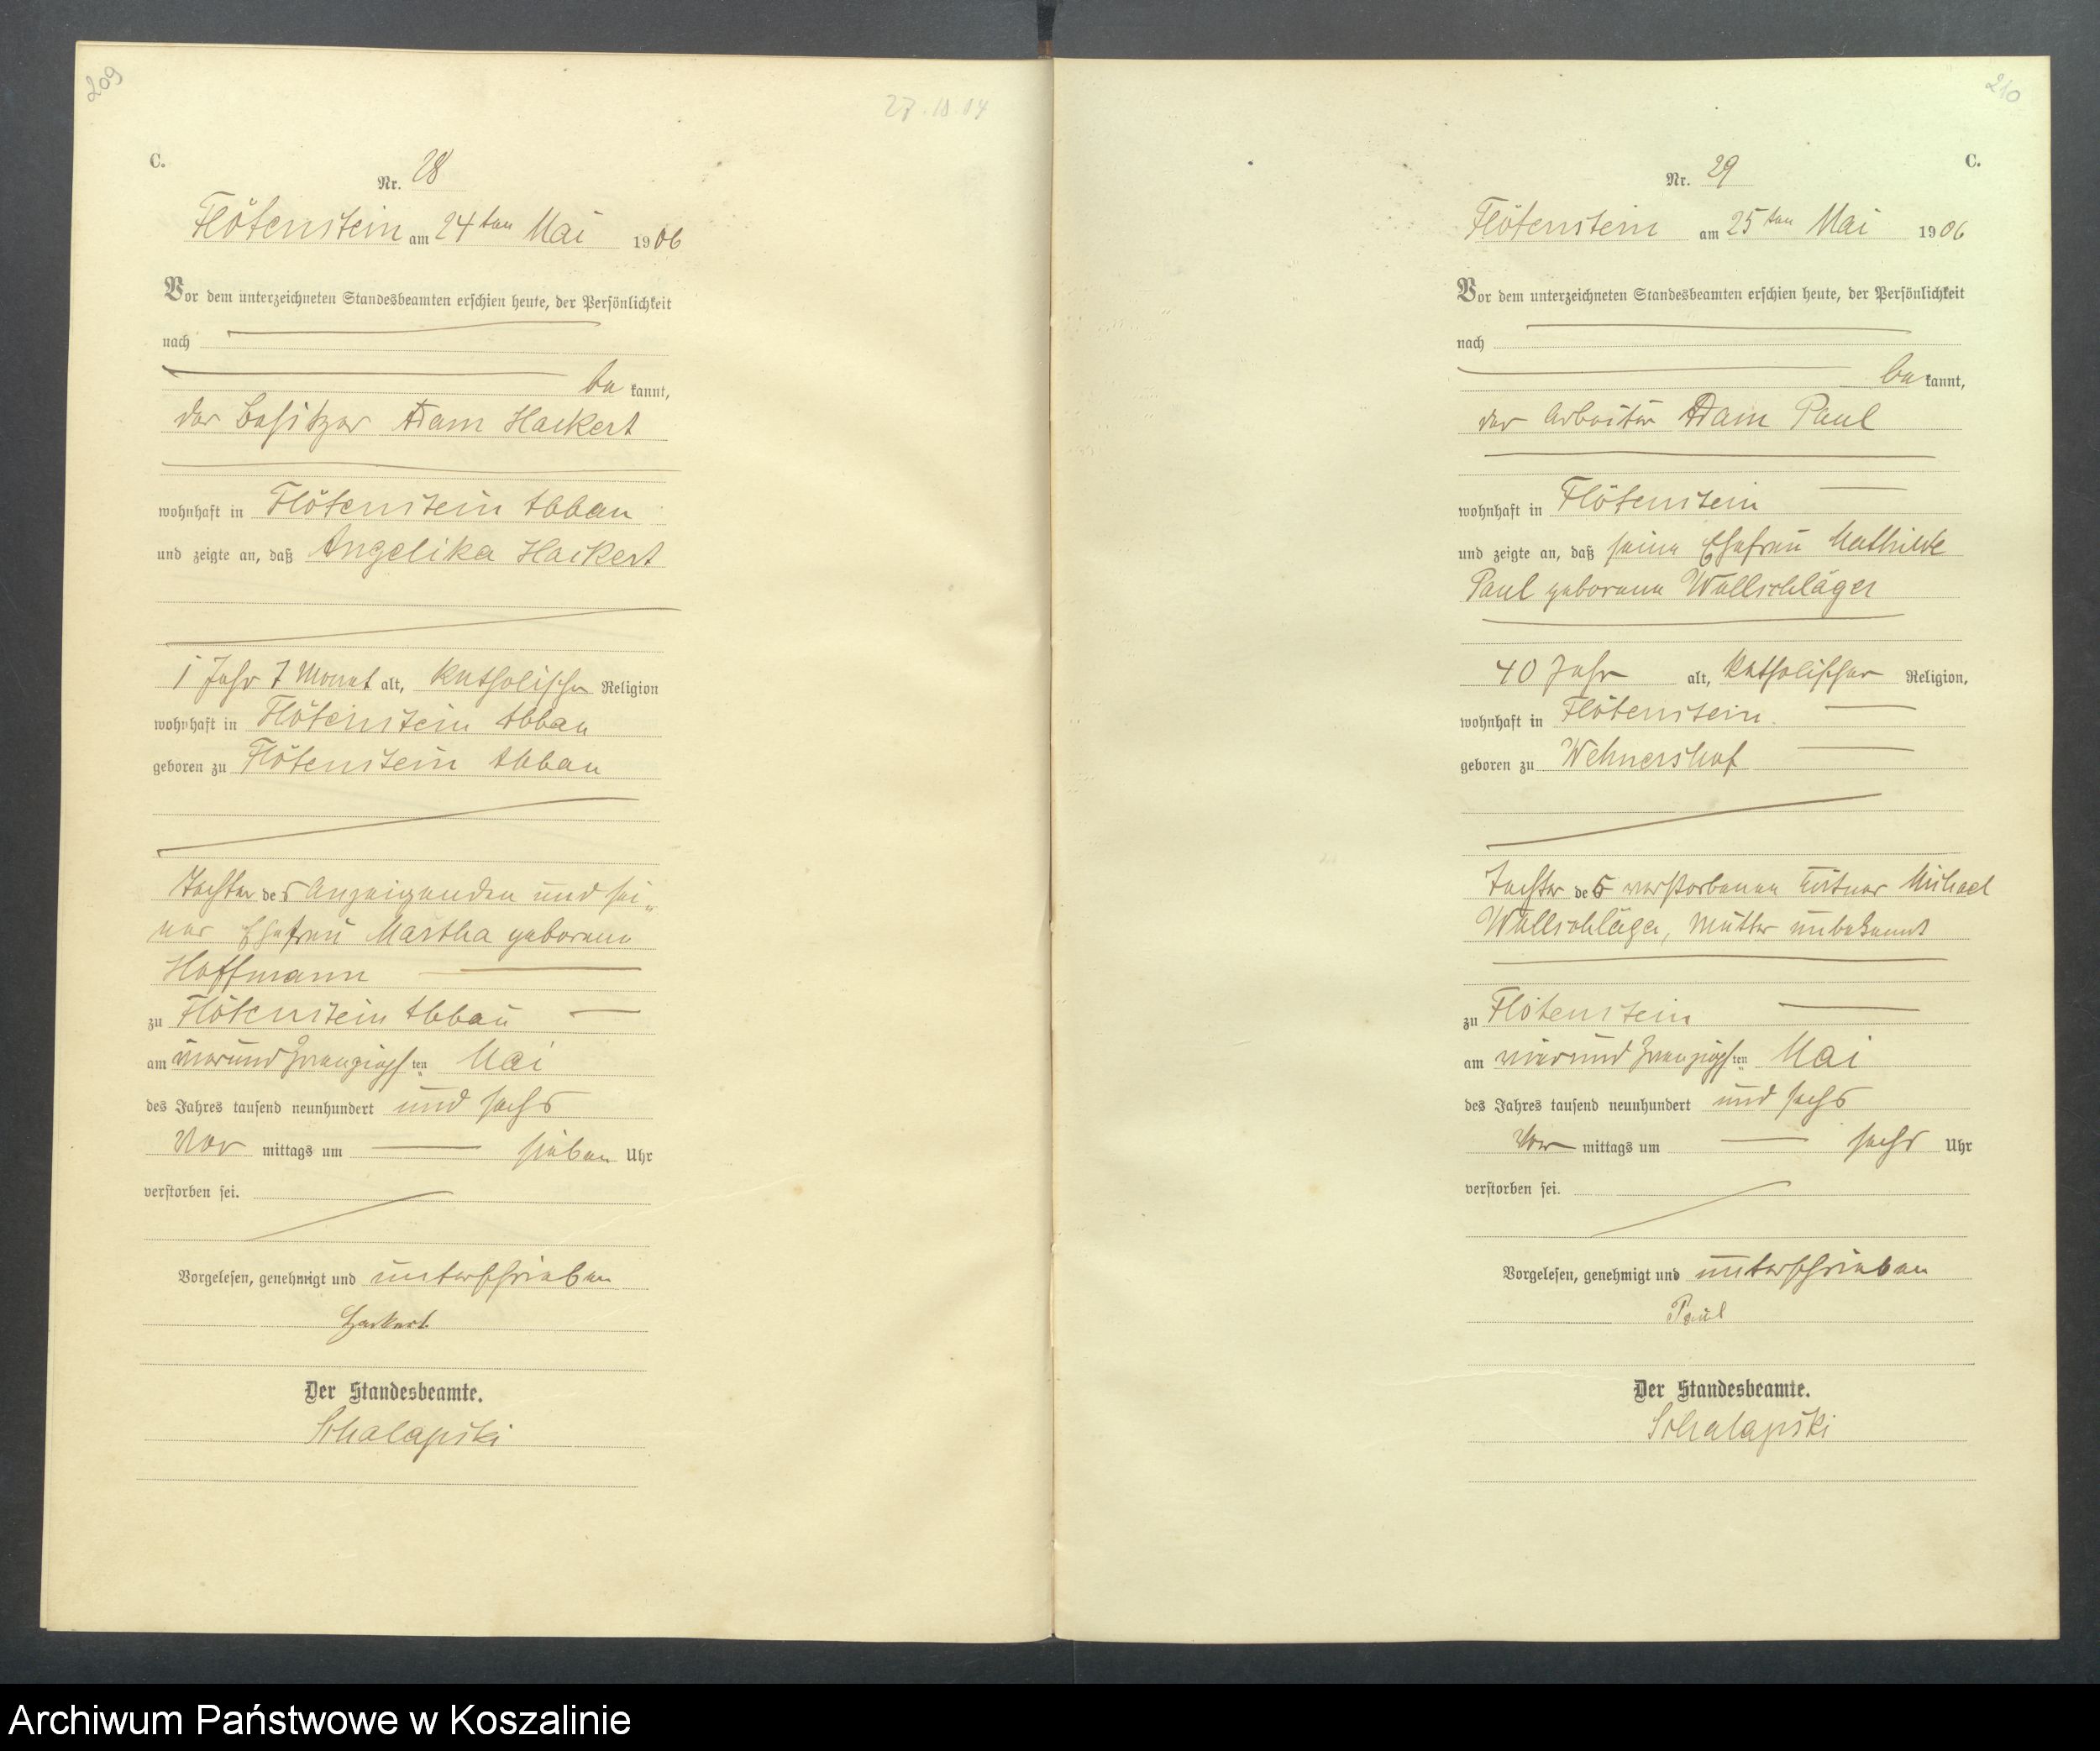 209
C.
Nr. 28
Flötenstein am 24ten Mai 1906
Vor dem unterzeichneten Standesbeamten erschien heute, der Persönlichkeit
nach
be kannt,
der Besitzer Adam Hackert
wohnhaft in Flötenstein Abbau
und zeigte an, daß Angelika Hackert
1 Jahr 7 Monat alt, katholischer Religion
wohnhaft in Flötenstein Abbau
geboren zu Flötenstein Abbau
Tochter des Anzeigenden und sei„
ner Ehefrau Martha geborene
Hoffmann
zu Flötenstein Abbau
am vierundzwanzigsten Mai
des Jahres tausend neunhundert und sechs
Vor mittags um sieben Uhr
verstorben sei.
Vorgelesen, genehmigt und unterschrieben
Hackert
Der Standesbeamte.
Schalapski
210
C.
Nr. 29
Flötenstein am 25ten Mai 1906
Vor dem unterzeichneten Standesbeamten erschien heute, der Persönlichkeit
nach
be kannt,
der Arbeiter Adam Paul
wohnhaft in Flötenstein
und zeigte an, daß seine Ehefrau Mathilde
Paul geborene Wollschläger
40 Jahr alt, katholischer Religion,
wohnhaft in Flötenstein
geboren zu Wehnershof
Tochter des verstorbenen Michael
Wollschläger, Mutter unbekannt
zu Flötenstein
am vierundzwanzigsten Mai
des Jahres tausend neunhundert und sechs
Vor mittags um sechs Uhr
verstorben sei.
Vorgelesen, genehmigt und unterschrieben
Paul
Der Standesbeamte.
Schalapski
Archiwum Państwowe w Koszalinie